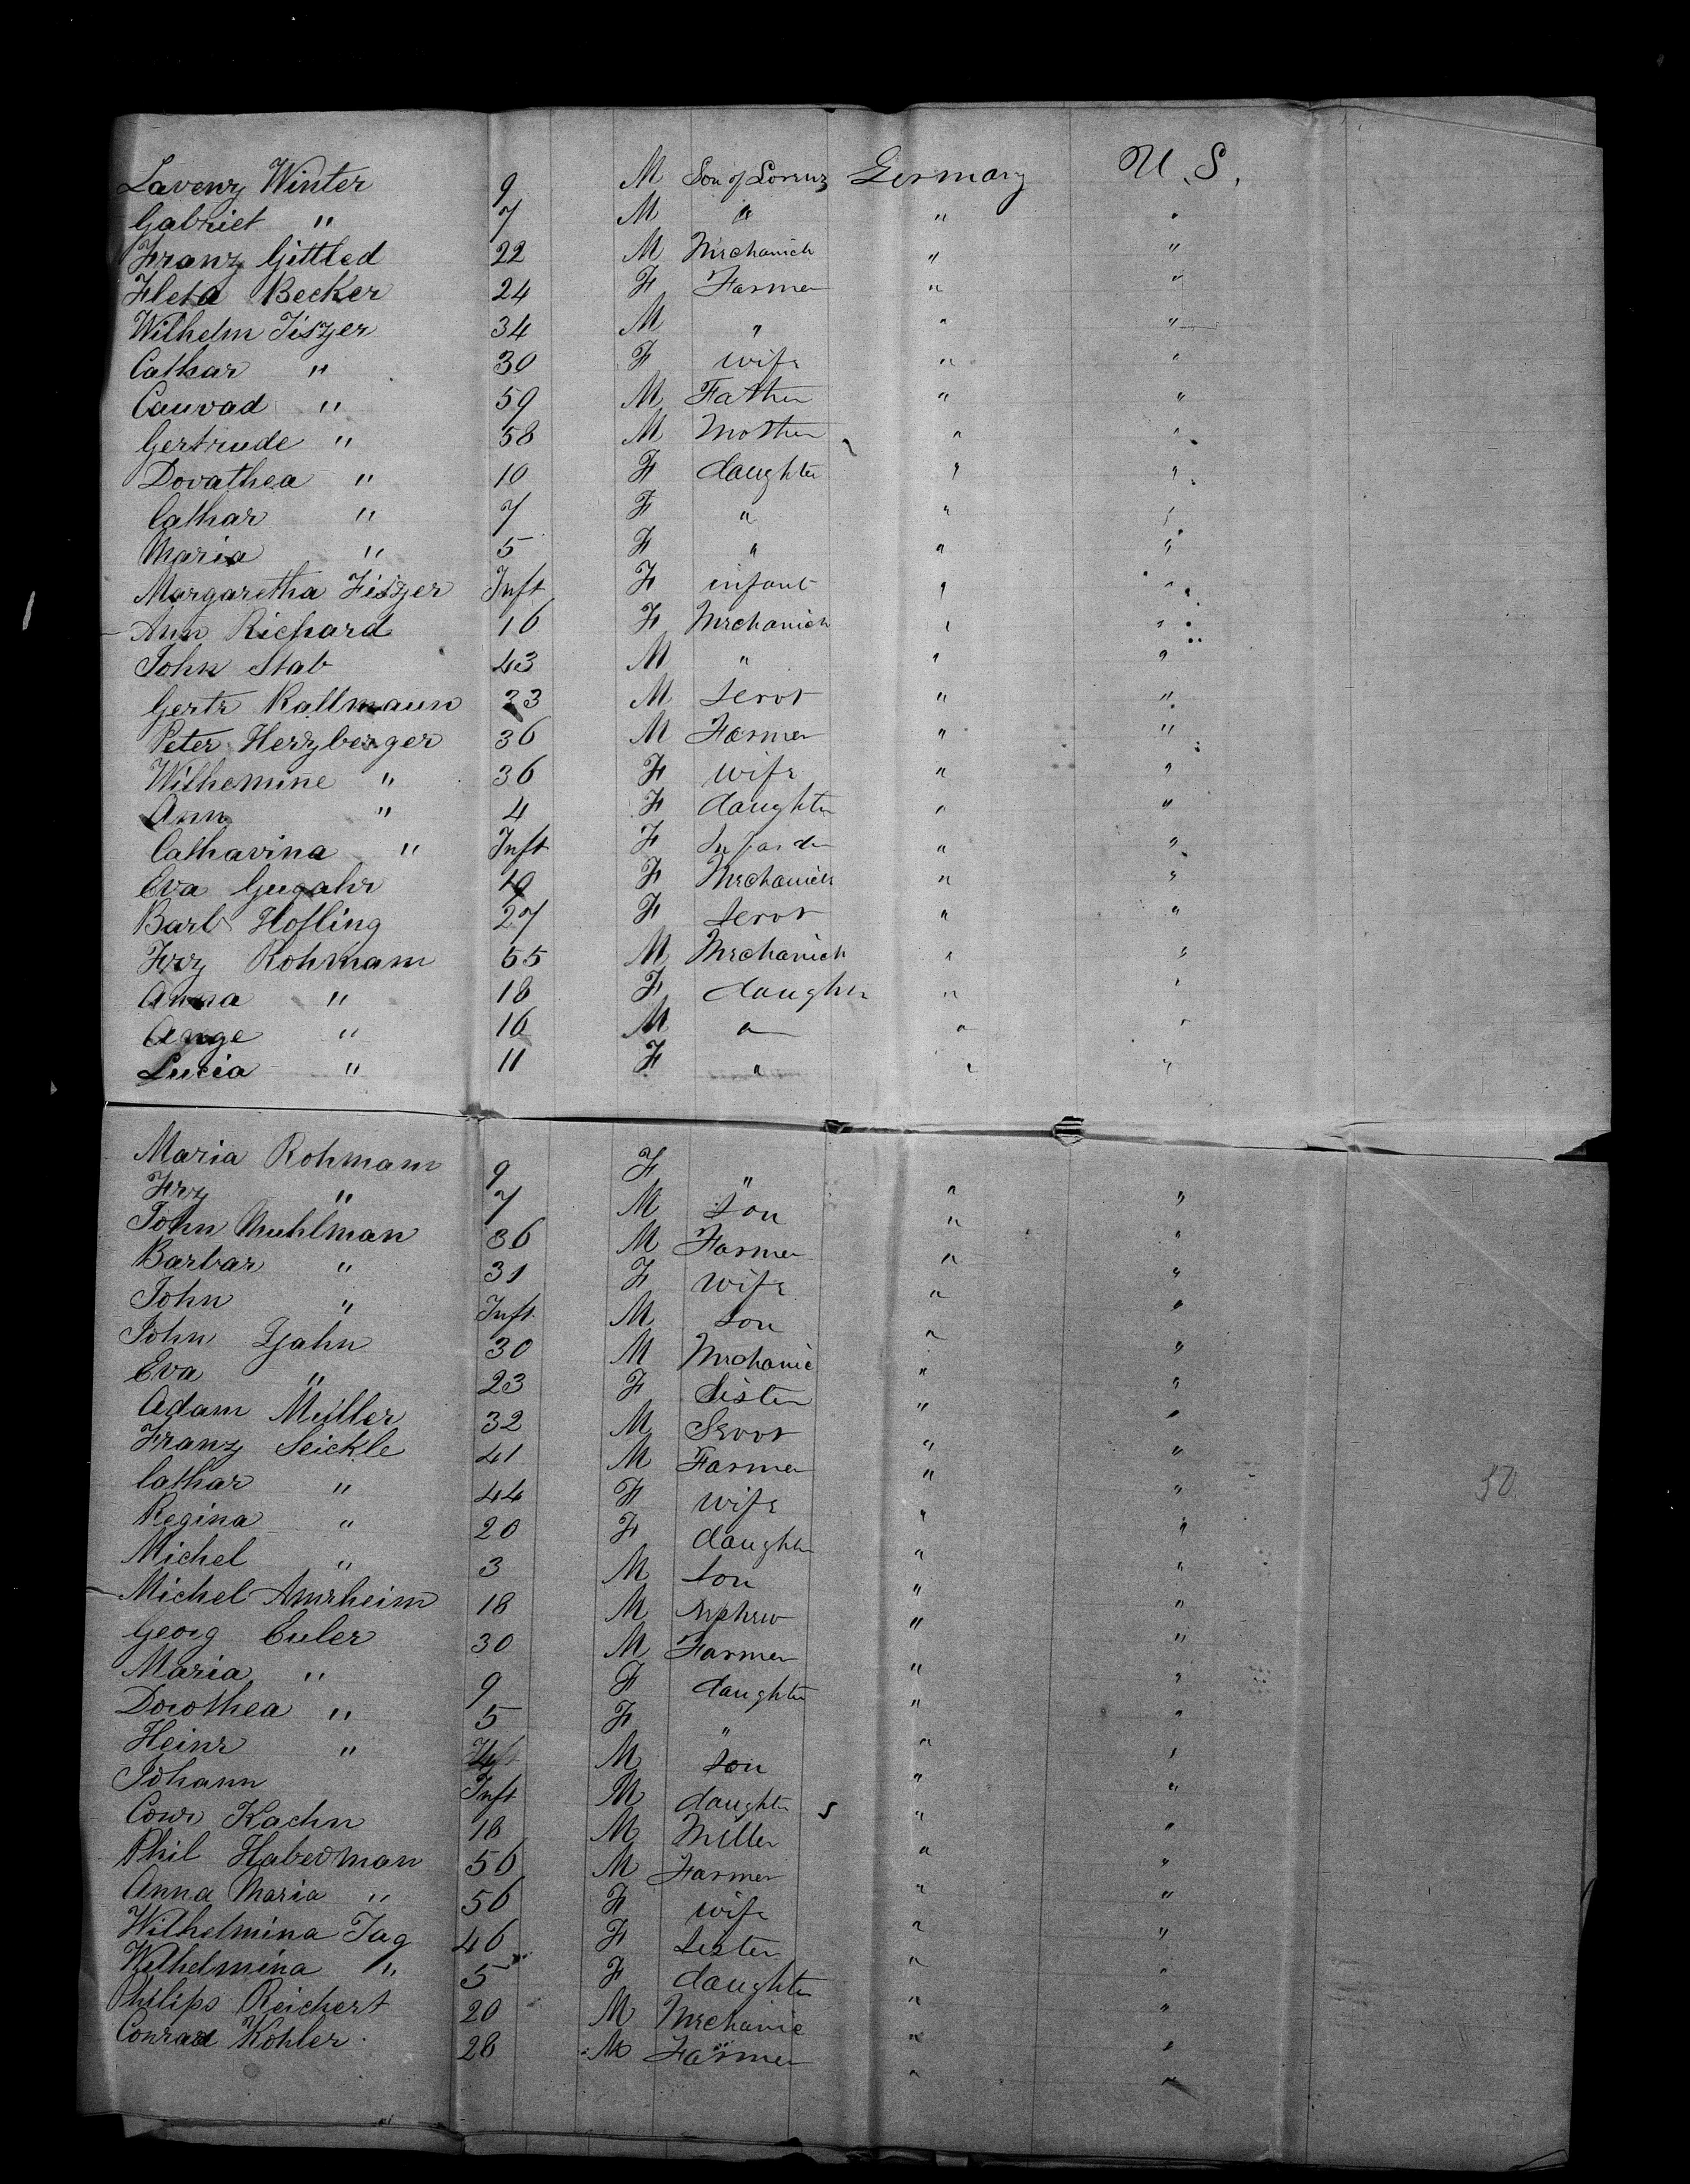 Lavenz Winter 9 M Son of Lorenz Germany U.S.
Gabriel " 7 M " " "
Franz Gittled 22 M Mechanich " "
Fleta Becker 24 F Farmer " "
Wilhelm Fiszer 34 M " " "
Cathar " 30 F wife " "
Conrad " 59 M Father " "
Gertrude " 58 M Mother " "
Dorathea " 10 F daughter " "
Cathar " 7 F " " "
Maria " 5 F " " "
Margaretha Fiszer Inft F infant " "
Ann Richard 16 F Mechanich " "
John Stab 43 M " " "
Gertr Kallmann 23 M Servt " "
Peter Herzberger 36 M Farmer " "
Wilhemine " 36 F wife " "
Ann " 4 F daughter " "
Catharina " Inft F " "
Eva Gugahr F Mechanich " "
Barb Hofling 27 F Servt " "
Frz Rohmam 55 M Mechanich " "
Anna " 18 F daughter " "
Ange " 16 M " " "
Lucia " 11 F " " "
Maria Rohmam 9 F " " "
Frz " 7 M Son " "
John Muhlman 36 M Farmer " "
Barbar " 31 F wife " "
John " Inft M Son " "
John Zjahn 30 M Mechanic " "
Eva " 23 F Sister " "
Adam Müller 32 M Servt " "
Franz Seickle 41 M Farmer " "
Cathar " 44 F wife " "
Regina " 20 F daughter " "
Michel " 3 M Son " "
Michel Amrheim 18 M Nephew " "
Georg Euler 30 M Farmer " "
Maria " 9 F daughter " "
Dorothea " 5 F " " "
Heinr " M Son " "
Johann Inft M daughter s " "
Conr Kachn 18 M Miller " "
Phil Haberman 56 M Farmer " "
Anna Maria " 56 F wife " "
Wilhelmina Tag 46 F Sister " "
Wilhelmina " 5 F daughter " "
Philips Reichert 20 M Mechanic " "
Conrad Kohler 28 M Farmer " "
50